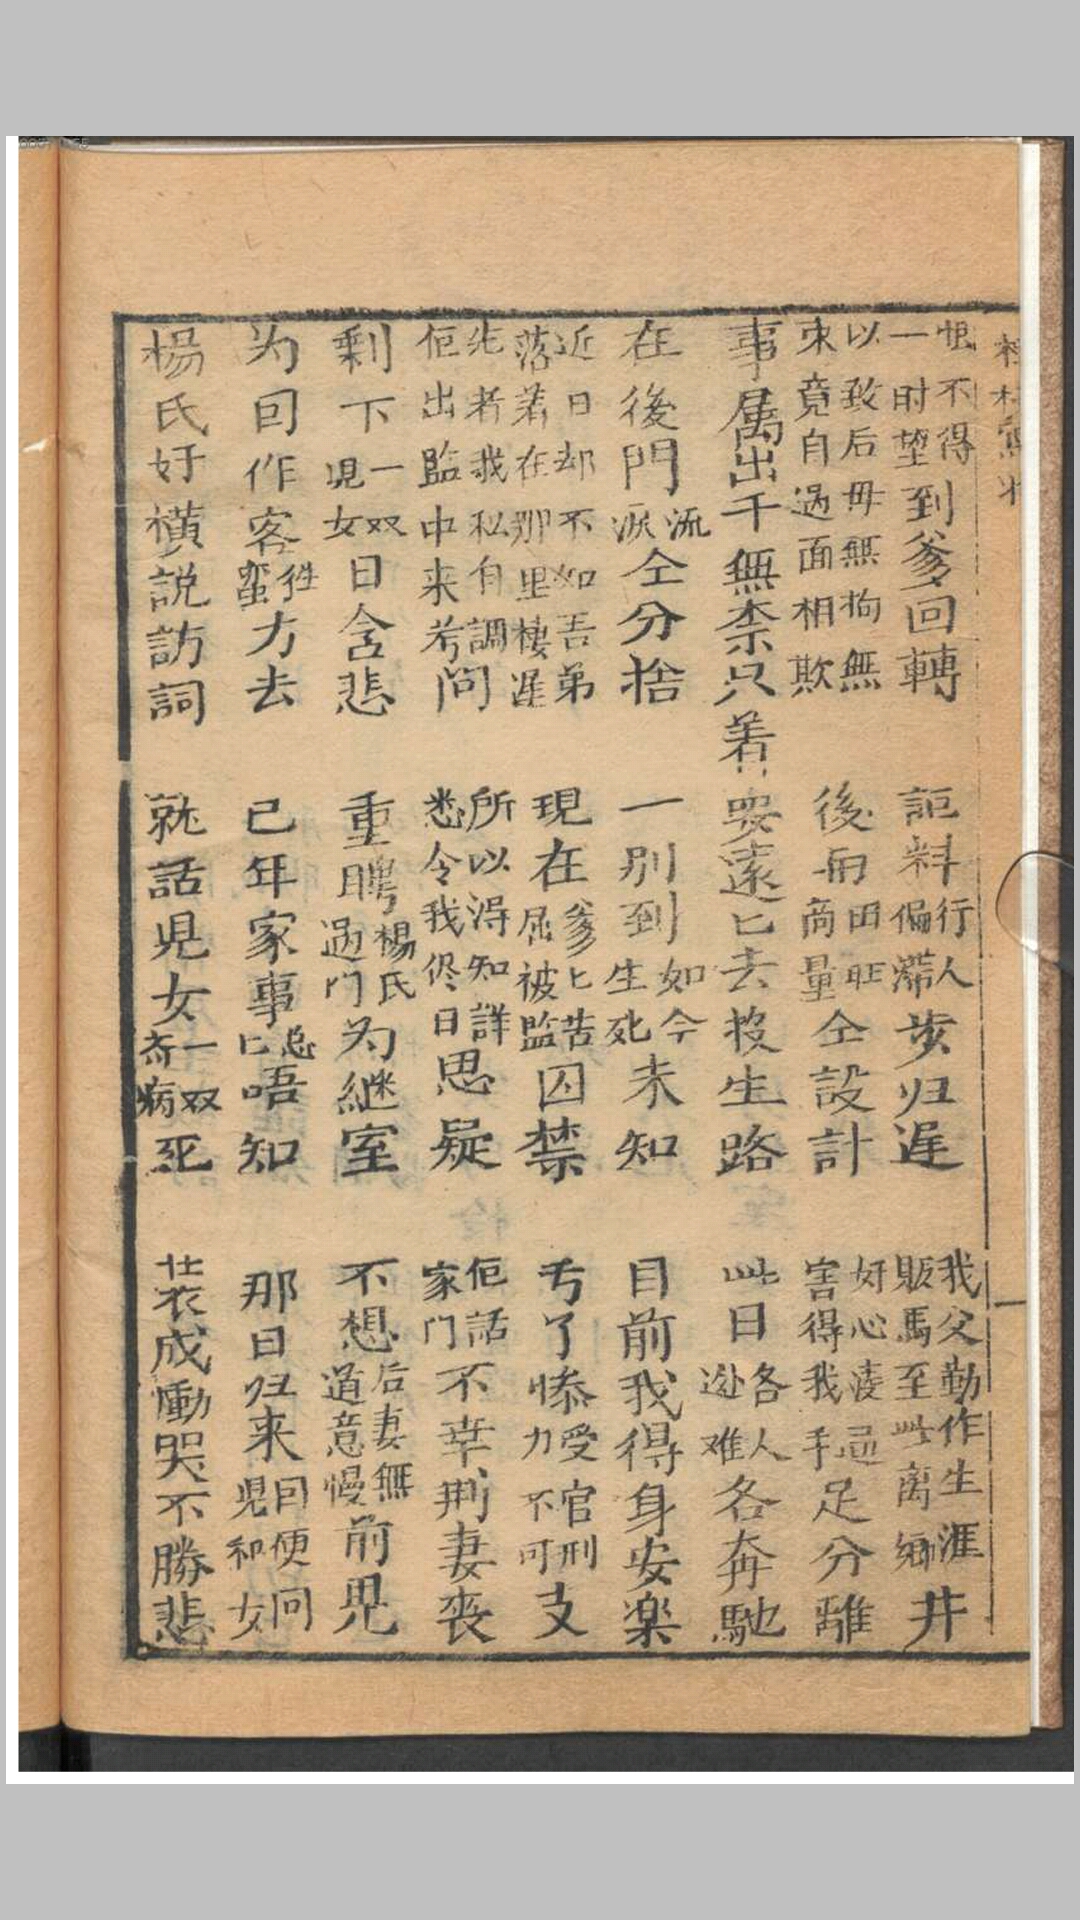 恨不得一时望到爹回轉 詎料行人偏滯步归遲 我父勤作生涯販馬至此离鄉井
以致后毋無拘無束竟自過面相欺 後用田旺商量仝設計 好心凌逼害得我手足分離
事属出千無奈只着 要遠匕去投生路 此日各人逊难各奔馳
在後門流淚仝分捨 一别到如今生死未知 目前我得身安楽
近日却不如吾弟落着在那里棲遲 現在爹匕苦屈被監囚禁 亏了惨受官刑力不可支
先者我私自調佢出監中来考問 所以淂知詳悉令我终日思疑 佢話家门不幸荆妻丧
剩下一双児女日含悲 重聘楊氏過门为継室 不想后妻無道意慢前児
为因作客徃蛮方去 己年家事总匕唔知 那日归来回便问児和女
楊氏好横説訪詞 就話児女一双斉病死 装成慟哭不勝悲